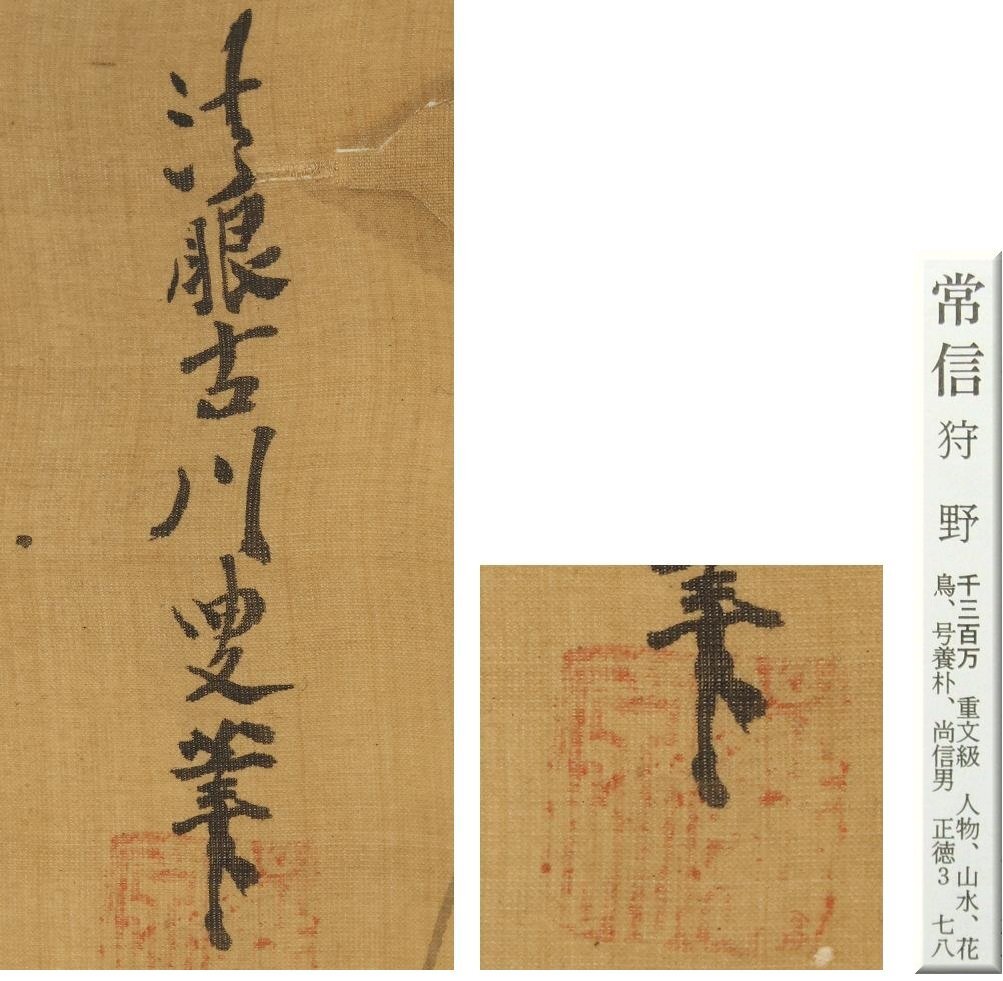 法眼古川叟筆
常信 狩野 千三百万 重文級 人物、山水、花
鳥、号養朴、尚信男 正徳3 七八